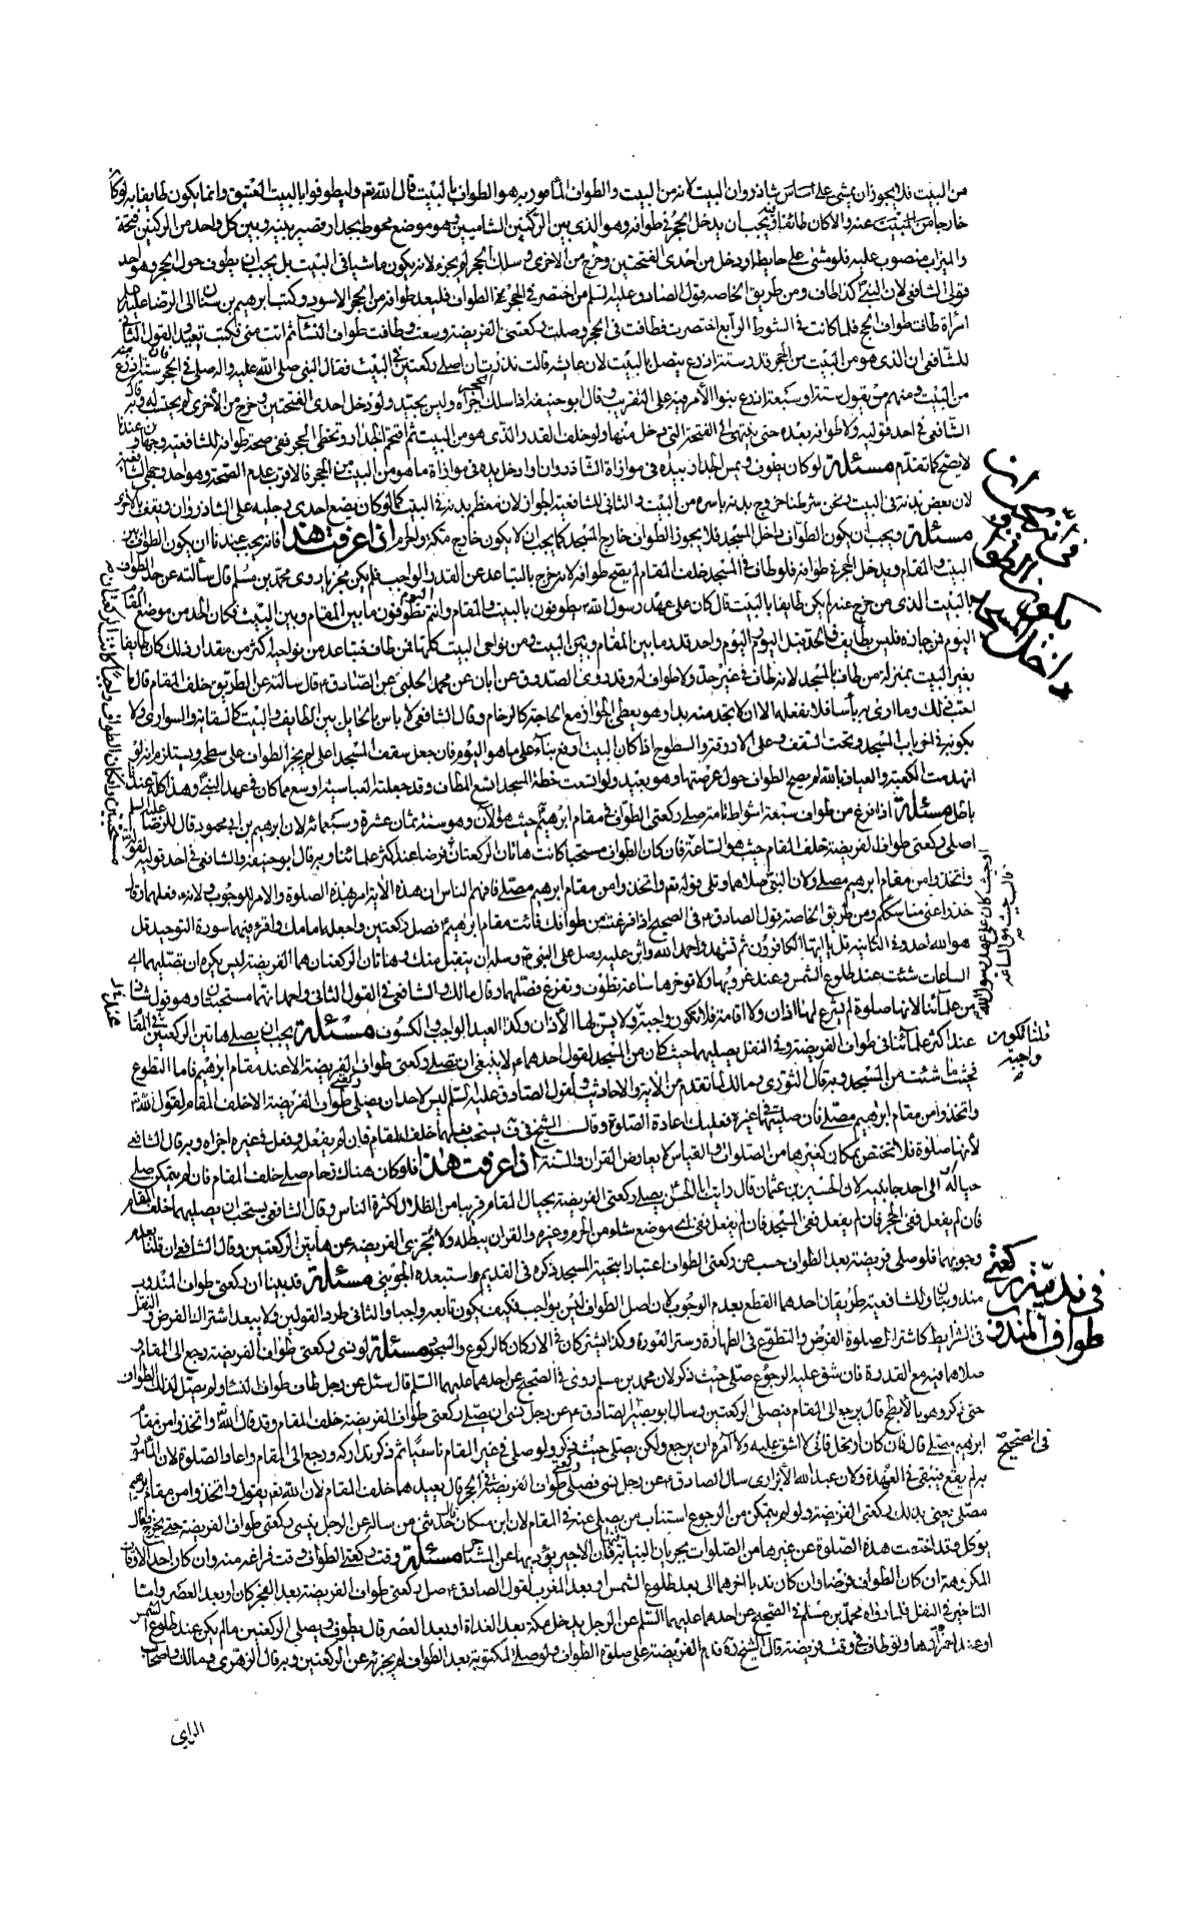 من البيت فلا يجوز ان يمشي على اساس شاذروان البيت لانه من البيت والطواف المأمور به هو الطواف بالبيت قال الله تعم وليطوفوا بالبيت العتيق وانما يكون طايفا به لو كان
خارجا من البيت عنه والا كان طائفا فيه ويجب ان يدخل الحجر في طوافه وهو الذي بين الركنين الشاميين وهو موضع محوط بجدار قصير بينه وبين كل واحد من الركنين فتحة
والميزاب منصوب عليه فلو مشى على حايطه او دخل من احدى الفتحتين وخرج من الاخرى وسلك الحجر لم يجزه لانه يكون ماشيا في البيت بل يجب ان يطوف حول الحجر وهو احد
قولي الشافعي لان النبي ص كذا طاف ومن طريق الخاصه قول الصادق عليه السلم من اختصر في الحجر في الطواف فليعد طوافه من الحجر الاسود وكتب ابرهيم بن سنان الى الرضا عليه
امرأة طافت طواف الحج فلما كانت في الشوط الرابع اختصرت فطافت في الحجر وصلت ركعتي الفريضة وسعت وطافت طواف النساء ثم اتت منى فكتب تعيد والقول الثاني
للشافعي ان الذي هو من البيت من الحجر قدر ستة اذرع يتصل بالبيت لان عايشه قالت نذرت ان اصلي ركعتين في البيت فقال النبي صلى الله عليه واله صلي في الحجر فان ستة اذرع منه
من البيت ومنهم من يقول ستة او سبعة اذرع بنوا الامر فيه على التقريب وقال ابو حنيفه اذا سلك الحجر اجزأه وليس بجيد ولو دخل احدى الفتحتين وخرج من الاخرى لم يحتسب له وبه قال
الشافعي في احد قوليه ولا طوافه بعده حتى ينتهي الى الفتحة التي دخل منها ولو خلف القدر الذي هو من البيت ثم اقتحم الجدار وتخطى الحجر ففي صحة طوافه للشافعيه وجهان وعندنا
لا يصح كما تقدم مسئلة لو كان يطوف ويمس الجدار بيده في موازاة الشاذروان او ادخل يده في موازاة ما هو من البيت من الحجر فالاقرب عدم الصحة وهو احد وجهي الشافعيه
لان بعض بدنه في البيت ونحن شرطنا خروج بدنه باسره من البيت والثاني للشافعية الجواز لان معظم بدنه في البيت كما لو كان يضع احدى رجليه على الشاذروان ويقف بالاخرى
مسئلة ويجب ان يكون الطواف داخل المسجد فلا يجوز الطواف خارج المسجد كما يجب ان لا يكون خارج مكة والحرم اذا عرفت هذا فانه يجب عندنا ان يكون الطواف بين
البيت والمقام ويدخل الحجر في طوافه فلو طاف في المسجد خلف المقام لم يصح طوافه لانه خرج بالتباعد عن القدر الواجب فلم يكن مجزيا روى محمد بن مسلم قال سألته عن حد الطواف
بالبيت الذي من خرج عنه لم يكن طايفا بالبيت قال كان على عهد رسول الله ص يطوفون بالبيت والمقام وانتم اليوم تطوفون ما بين المقام وبين البيت فكان الحد من موضع المقام
اليوم فمن جازه فليس بطايف والحد قبل اليوم واليوم واحد قدر ما بين المقام وبين البيت ومن نواحي البيت كلها فمن طاف فتباعد من نواحيه اكثر من مقدار ذلك كان طايفا
بغير البيت بمنزلة من طاف بالمسجد لانه طاف في غير حد ولا طواف له وقد روى الصدوق عن ابان عن محمد الحلبي عن الصادق ع قال سالته عن الطواف خلف المقام قال ما
احب ذلك وما ارى به بأسا فلا تفعله الا ان لا تجد منه بدا وهو يعطي الجواز مع الحاجة كالزحام وقال الشافعي لا باس بالحايل بين الطايف والبيت كالسقاية والسواري ولا
بكونه في اخريات المسجد وتحت السقف وعلى الاروقة والسطوح اذا كان البيت ارفع بناء على ما هو اليوم فان جعل سقف المسجد اعلى لم يجز الطواف على سطحه ويستلزم انه لو
انهدمت الكعبة والعياذ بالله لم يصح الطواف حول عرصتها وهو بعيد ولو اتسعت خطة المسجد اتسع المطاف وقد جعلته العباسية اوسع مما كان في عهد النبي ص وهذا كله عندنا
باطل مسئلة اذا فرغ من طواف سبعة اشواط تامة صلى ركعتي الطواف في مقام ابرهيم ع حيث هو الآن وهو سنة ثمان عشرة وسبعمائة لان ابرهيم بن ابي محمود قال للرضا عليه السلم
اصلي ركعتي طواف الفريضة خلف المقام حيث هو الساعة فان كان الطواف مستحبا كانت هاتان الركعتان فرضا عند اكثر علمائنا وبه قال ابو حنيفه والشافعي في احد قوليه لقوله
واتخذوا من مقام ابرهيم مصلى وكان النبي ص صلاهما وتلى قوله تعم واتخذوا من مقام ابرهيم مصلى فافهم الناس ان هذه الآية امر بهذه الصلوة والامر للوجوب ولانه ع فعلهما وقال
خذوا عني مناسككم ومن طريق الخاصة قول الصادق ع في الصحيح اذا فرغت من طوافك فائت مقام ابرهيم ع فصل ركعتين واجعله امامك واقرء فيهما سورة التوحيد قل
هو الله احد وفي الثانية قل يا ايها الكافرون ثم تشهد واحمد الله واثن عليه وصل على النبي ص وسله ان يتقبل منك وهاتان الركعتان هما الفريضة ليس يكره ان تصليهما اي
الساعات شئت عند طلوع الشمس وعند غروبها ولا تؤخرها ساعة تطوف وتفرغ فصلهما وقال مالك والشافعي في القول الثاني واحمد انهما مستحبتان وهو قول شاذ
من علمائنا لانها صلوة لم يشرع لها اذان ولا اقامة فلا تكون واجبة ولا يسن لها الاذان وكذا العيد الواجب والكسوف مسئلة يجب ان يصلي هاتين الركعتين في المقام
عند اكثر علمائنا في طواف الفريضة وفي النفل يصليهما حيث كان من المسجد لقول احدهما ع لا ينبغي ان تصلي ركعتي طواف الفريضة الا عند مقام ابرهيم فاما التطوع
فحيثما شئت من المسجد وبه قال الثوري ومالك لما تقدم من الآية والاحاديث ولقول الصادق عليه السلم ليس لاحد ان يصلي ركعتي طواف الفريضة الا خلف المقام لقول الله تعم
واتخذوا من مقام ابرهيم مصلى فان صليتهما في غيره فعليك اعادة الصلوة وقال الشيخ في ف يستحب فعلهما خلف المقام فان لم يفعل وفعل في غيره اجزاه وبه قال الشافعي
لانها صلوة فلا تختص بمكان كغيرها من الصلوات والقياس لا يعارض القران والسنة اذا عرفت هذا فلو كان هناك زحام صلى خلف المقام فان لم يتمكن صلى
حياله الى احد جانبيه لان الحسين بن عثمان قال رايت ابا الحسن ع يصلي ركعتي الفريضة بحيال المقام قريبا من الظلال لكثرة الناس وقال الشافعي يستحب ان يصليهما خلف المقام
فان لم يفعل ففي الحجر فان لم يفعل ففي المسجد فان لم يفعل ففي اي موضع شاء من الحرم وغيره والقران يبطله ولا تجزي الفريضة عن هاتين الركعتين وقال الشافعي ان قلنا بعدم
وجوبهما فلو صلى فريضة بعد الطواف حسب عن ركعتي الطواف اعتبارا بتحية المسجد ذكره في القديم واستبعده الجويني مسئلة قد بينا ان ركعتي طواف المندوب
مندوبتان وللشافعية طريقان احدهما القطع بعدم الوجوب لان اصل الطواف ليس بواجب فكيف يكون تابعه واجبا والثاني طرد القولين ولا يبعد اشتراك الفرض والنفل
في الشرايط كاشتراك صلوة الفرض والتطوع في الطهارة وستر العورة وكذا يشتركان في الاركان كالركوع والسجود مسئلة لو نسي ركعتي طواف الفريضة رجع الى المقام و
صلاهما فيه مع القدرة فان شق عليه الرجوع صلى حيث ذكر لان محمد بن مسلم روى في الصحيح عن احدهما عليهما السلم قال سئل عن رجل طاف طواف النساء ولم يصل لذلك الطواف
حتى ذكر وهو بالابطح قال يرجع الى المقام فيصلي الركعتين وسال ابو بصير الصادق ع عن رجل نسي ان يصلي ركعتي طواف الفريضة خلف المقام وقد قال الله تعم واتخذوا من مقام
ابرهيم مصلى قال فان كان ارتحل فاني لا اشق عليه ولا آمره ان يرجع ولكن يصلي حيث ذكر ولو صلى في غير المقام ناسيا ثم ذكر تداركه ورجع الى المقام واعاد الصلوة لان المأمور
به لم يقع فيبقى في العهدة ولان عبد الله الابزاري سال الصادق ع عن رجل نسي فصلى ركعتي طواف الفريضة في الحجر قال يعيدهما خلف المقام لان الله تعم يقول واتخذوا من مقام ابرهيم
مصلى يعني بذلك ركعتي الفريضة ولو لم يتمكن من الرجوع استناب من يصلي عنه في المقام لان ابن مسكان قال حدثني من ساله عن الرجل ينسى ركعتي طواف الفريضة حتى يخرج فقال
يوكل وقد اختصت هذه الصلوة عن غيرها من الصلوات بجريان النيابة فيها فان الاجير يؤديها عن المستاجر مسئلة وقت ركعتي الطواف وقت فراغه منه وان كان احد الاوقات
المكروهة ان كان الطواف فرضا وان كان ندبا اخرهما الى بعد طلوع الشمس او بعد المغرب لقول الصادق ع صل ركعتي طواف الفريضة بعد الفجر كان او بعد العصر واما
التاخير في النفل فلما رواه محمد بن مسلم في الصحيح عن احدهما عليهما السلم عن الرجل يدخل مكة بعد الغداة او بعد العصر قال يطوف ويصلي الركعتين ما لم يكن عند طلوع الشمس
او عند احمرارها ولو طاف في وقت فريضة قال الشيخ ره قدم الفريضة على صلوة الطواف ولو صلى المكتوبة بعد الطواف لم يجزئه عن الركعتين وبه قال الزهري ومالك واصحاب
الراي
في ندبية ركعتي
طواف المندوب
في الصحيح
فلا تكون
واجبة